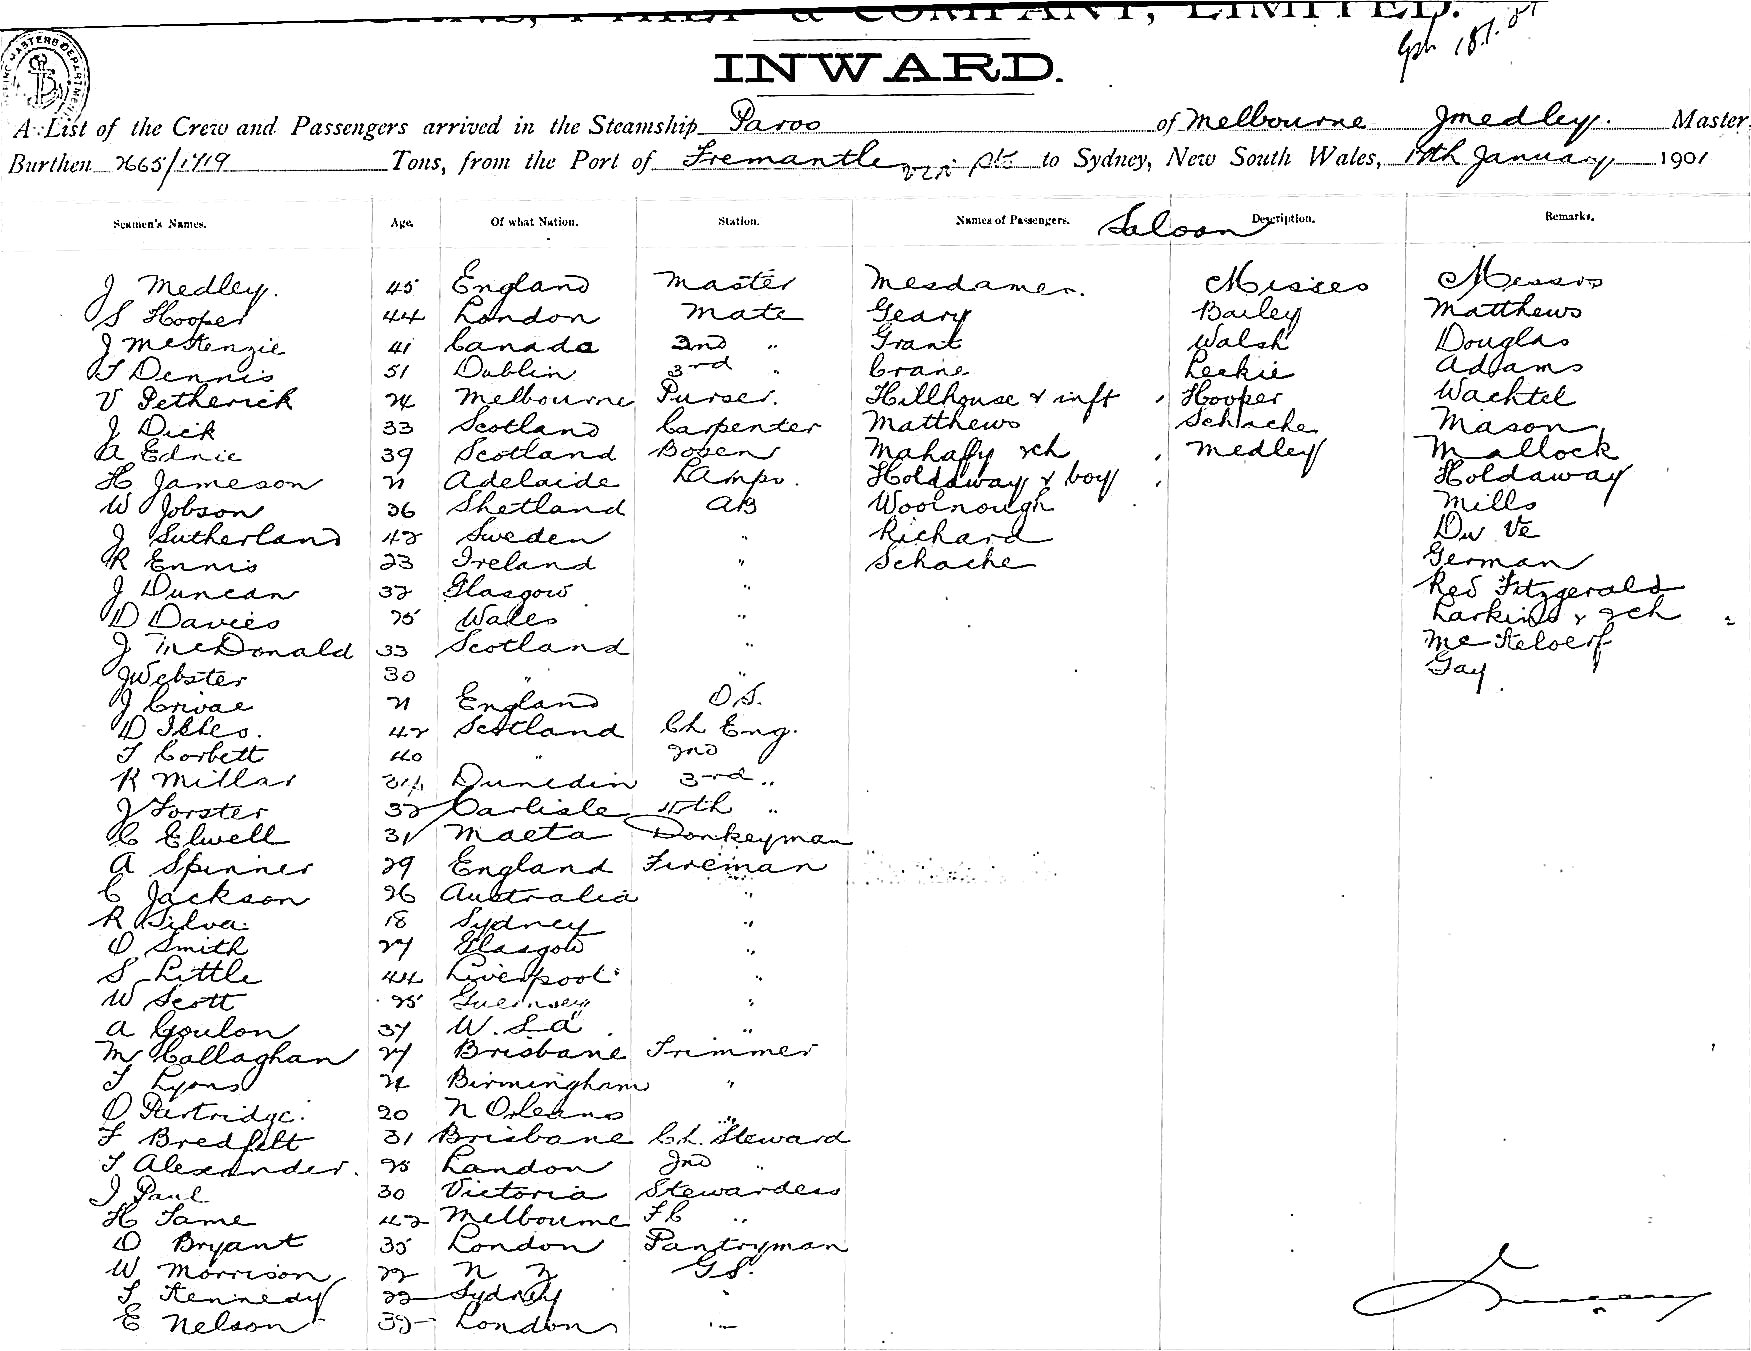 & COMPANY, LIMITED.
INWARD.
A List of the Crew and Passengers arrived in the Steamship Paroo of Melbourne J Medley. Master
Burthen 2665/1719 Tons, from the Port of Fremantle via pts to Sydney, New South Wales, January 1901
Seamen's Names. Age. Of what Nation. Station. Names of Passengers. Saloon Description. Remarks.
J Medley. 45 England Master Mesdames. Misses Messrs
S Hooper 44 London Mate Geary Bailey Matthews
J McKenzie 41 Canada 2nd " Grant Walsh Douglas
T Dennis 51 Dublin 3rd " Crane Leckie Adams
V Petherick 24 Melbourne Purser. Hillhouse & inft Hooper Wachtel
J Dick 33 Scotland Carpenter Matthews Schache Mason
A Ednie 39 Scotland Bosen Mahaffy 2ch Medley Mallock
H Jameson 21 Adelaide Lamps. Holdaway & boy Holdaway
W Jobson 36 Shetland AB Woolnough Mills
J Sutherland 42 Sweden " Richard Du Ve
R Ennis 23 Ireland " Schache German
J Duncan 32 Glasgow " Red Fitzgerald
D Davies 25 Wales " Larkins & 2ch
J McDonald 33 Scotland "
J Webster 30 " " Gay
J 21 England O S.
D 42 Scotland Ch Eng.
T Corbett 40 " 2nd
R Millar 34 Dunedin 3rd "
J Forster 32 Carlisle 4th "
C Elwell 31 Malta Donkeyman
A Spinner 29 England Fireman
C Jackson 26 Australia "
R Silva. 18 Sydney "
O Smith 27 Glasgow "
S Little 44 Liverpool "
W Scott 25 Guernsey "
A Goulon 37 "
M Callaghan 27 Brisbane Trimmer
T Lyons 24 Birmingham "
O Partridge. 20 N Orleans "
F Bredfelt 31 Brisbane Ch. Steward
T Alexander. 25 London 2nd "
J Paul 30 Victoria Stewardess
H Tame 42 Melbourne F C "
D Bryant 35 London Pantryman
W Morrison 22 N Z G S.
T Kennedy 22 Sydney "
E Nelson 35 London "